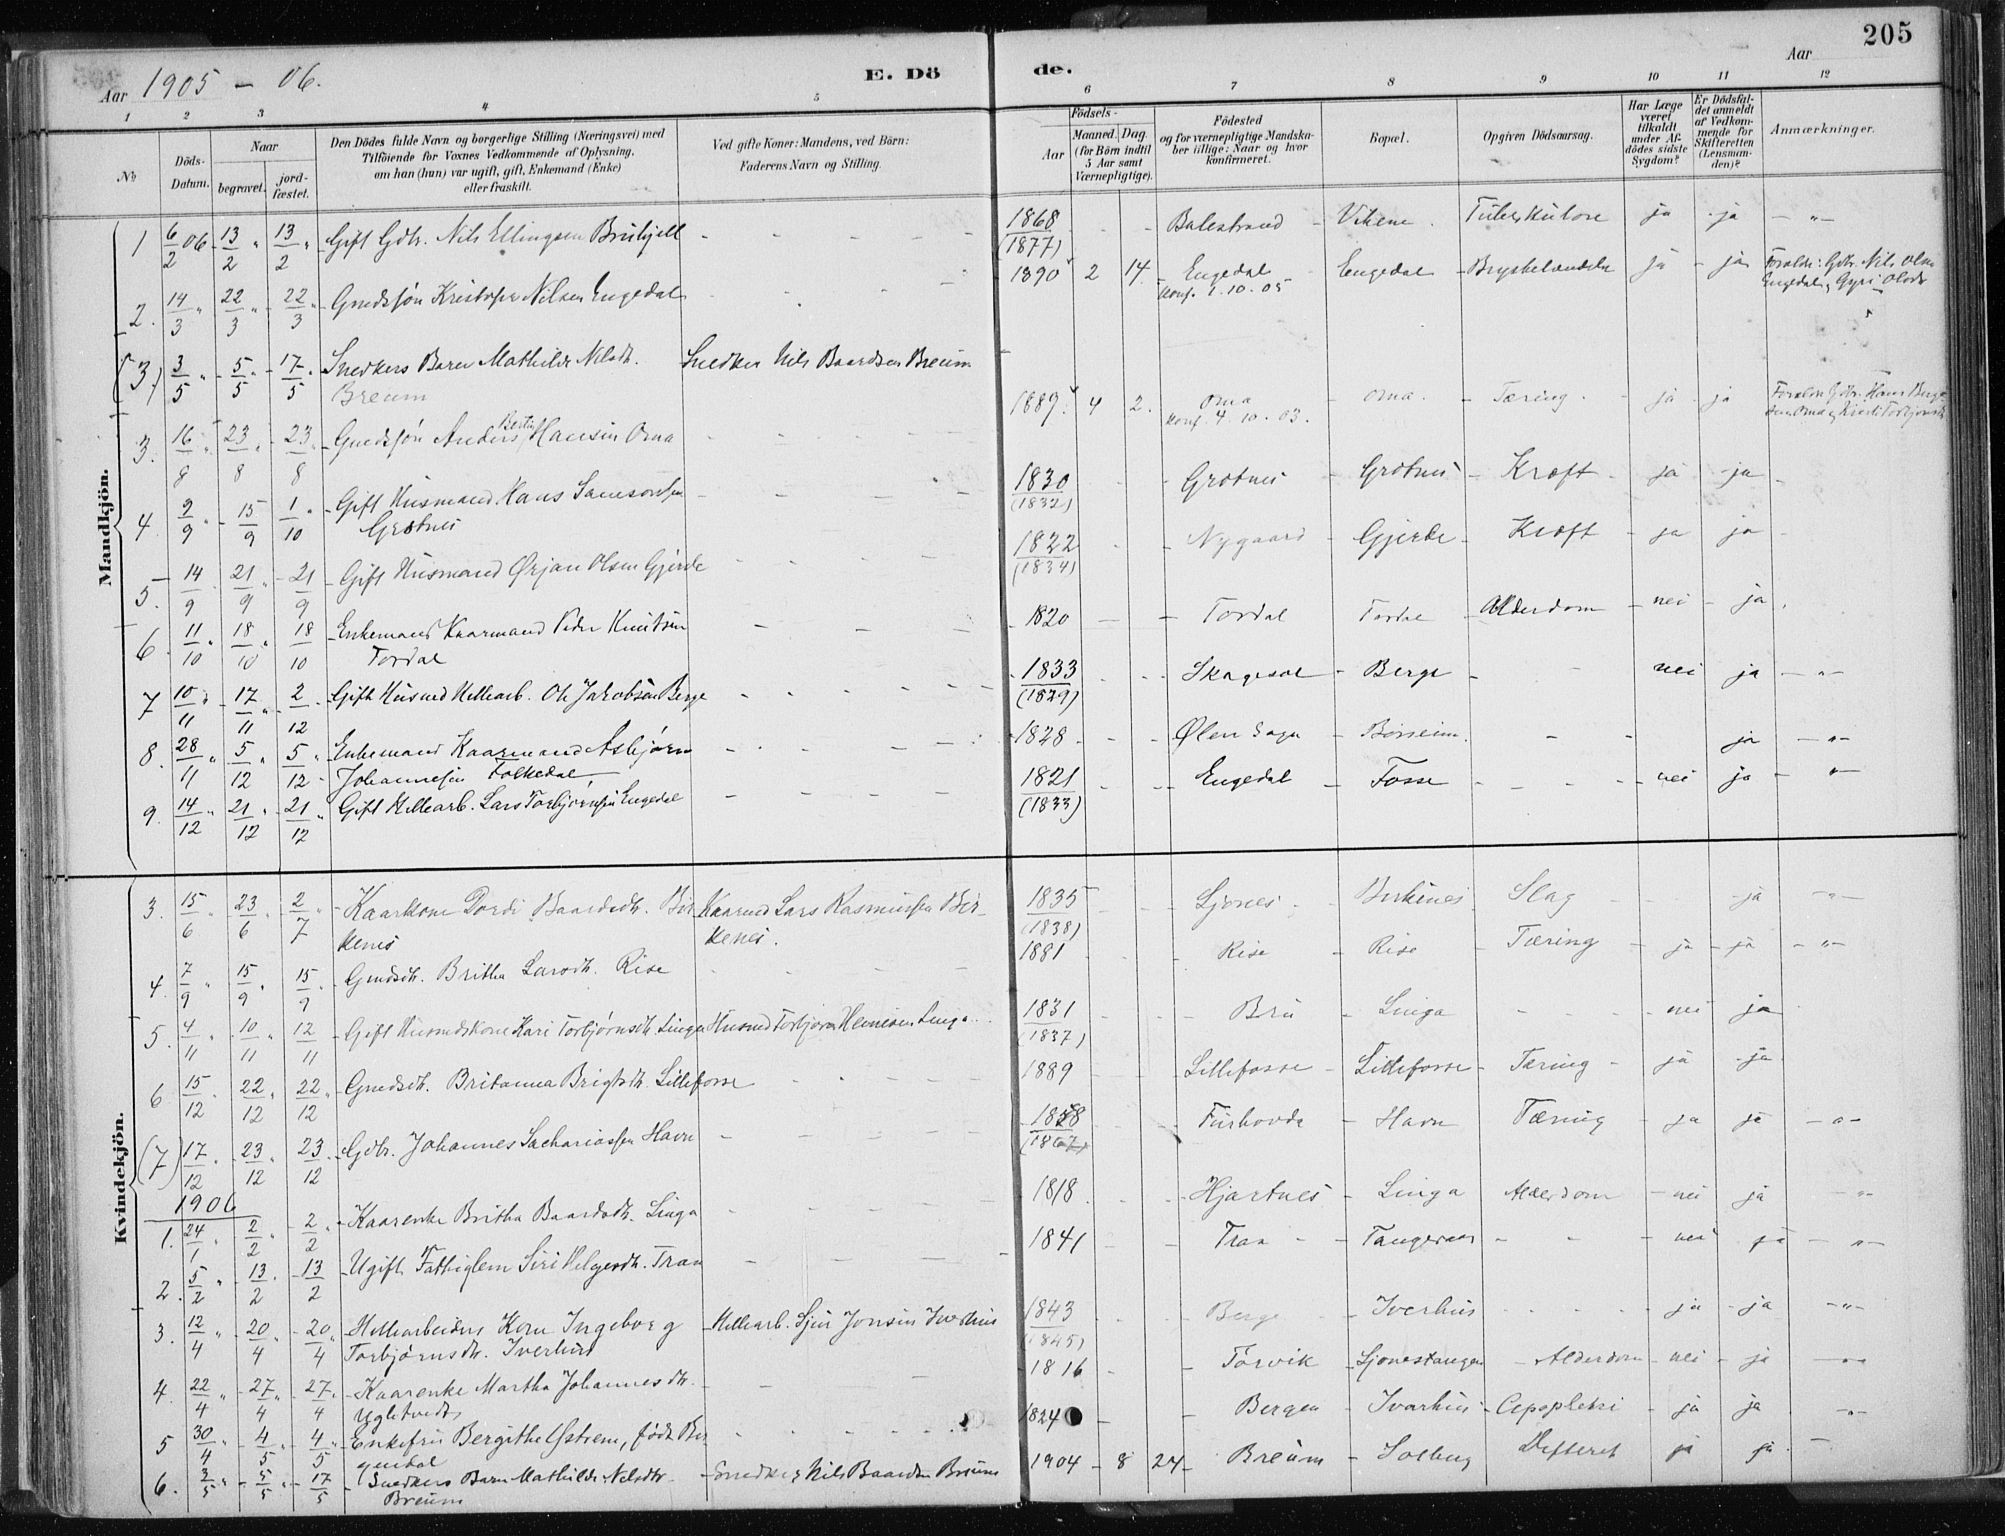 205
Aar 1905 - 06.
E. Dö de.
Aar
1 2 3 4 5 6 7 8 9 10 11 12
No
Döds-Datum.
Naar
begravet.
jord-fæstet.
Den Dödes fulde Navn og borgerlige Stilling (Næringsvei) med
Tilföiende for Voxnes Vedkommende af Oplysning,
om han (hun) var ugift, gift, Enkemand (Enke)
eller fraskilt.
Ved gifte Koner: Mandens, ved Börn:
Faderens Navn og Stilling.
Födsels-
Aar
Maaned. Dag.
(for Börn indtil
5 Aar samt
Værnepligtige).
Födested
og for værnepligtige Mandska-
ber tillige: Naar og hvor
konfirmeret.
Bopæl.
Opgiven Dödsaarsag.
Har Læge
været
tilkaldt
under Af-
dödes sidste
Sygdom?
Er Dödsfal-
det anmeldt
af Vedkom-
mende for
Skifteretten
(Lensman-
den)?
Anmærkninger.
Mandkjön.
1 6/2 06 - 13/2 " 13/2 " Gift Gdbr. Nils Ellingsen Brukjell - 1868 (1877) Balestrand - Vikene. Tuberkulose ja - ja - " -
2. 14/3 " 22/3 " 22/3 " Gmdssön Kristofer Nilsen Engedal 1890 2 14. Engedal Konf. 1.10.05 Engedal - ja - ja Foraldr: Gdbr. Nils Olsen Engedal og Gyri Olsdr
(3.) 3/5 " 5/5 " 17/5 " Snedkers Barn Mathilde Nilsdt. Breum Snedker Nils Baardsen Breum
3. 16/8 " 23/8 - 23/8 - Gmdssön Anders Bertin Hansen Oma 1889. 4 2. Oma Konf. 4.10.03. - Oma. - Tæring - ja - ja Foraldre Gdbr. Hans
4. 9/9 " - 15/9 1/10 " Gift Husmand Hans Samsonsen Grotnes 1830 (1832) Grotnes - Grotnes - Kræft - ja - ja
5. 14/9 21/9 " - 21/9 - Gift Husmand Ørjan Olsen Gjerde 1822 (1834) - Nygaard - Gjerde - Kræft - ja ja
6. 11/10 " 18/10 " 18/10 - Enkemand Kaarmand Peder Knutsen Tordal - 1820 - Tordal Tordal - Alderdom - nei - ja.
7 10/11 " - 17/11 " 2/12 - Gift Husmd Hellearb. Ole Jakobsen Berge - 1833 (1829) Skagesol - Berge - nei ja - " -
8. 28/11 " 5/12 " 5/12 " Enkemand Kaarmand Asbjørn Johannesen Folkedal - 1828 - Ølen Sogn - Børseim. - ja - " -
9. 14/12 " 21/12 " 21/12 " Gift Hellearb. Lars Torbjørnsen Engedal - 1821 (1833) Engedal - Fosse - nei ja - " -
Kvindekjön.
3. 15/6 " 23/6 " 2/7 " - Kaarkone Dordi Baardsdt. Birkenes Kaarmd Lars Rasmussen Birkenes. 1835 (1838) Ljones - Birkenes Slag - ja - " -
4. 7/9 " 15/9 " 15/9 " Gmdsdt. Britha Larsdt. Rise 1881 - Rise - Rise - Tæring - ja - ja - " -
5. 4/11 " 10/11 " 12/11 - Gift Husmdskone Kari Torbjørnsdt. Linga Husmd Torbjørn Linga. 1831 (1837) - Bru - Linga - nei ja
6 15/12 " 22/12 " 22/12 - Gmdsdt. Britanna Brigtsdt. Lillefosse 1889 - Lillefosse - Lillefosse - Tæring - ja - ja
(7) 17/12 - 23/12 " 23/12 - Gdbr. Johannes Sachariassen Havn - 1858 (1867) Furhovde - Havn - Tæring - ja - ja - " -
1906
1. 24/1 " 2/2 " - 2/2 " - Kaarenke Britha Baardsdt. Linga - 1818 - Hjartnes - Linga Alderdom - nei ja - " -
2. 5/2 " - 13/2 " - 13/2 - Ugift Fattiglem Siri Helgesdt. Tran - 1841 - Tran - Tangeraas - nei ja - " -
3. 12/4 " - 20/4 - 20/4 " - Hellearbeiders Kone Ingeborg Torbjørnsdt. Iverhus - Hellearb. Sjur Jonsen Iverhus 1843 (1845) Berge - Iverhus - ja - ja - " -
4. 22/4 " - 27/4 " - 27/4 - Kaarenke Martha Johannesdt. Ugletvedt - 1816 - Torvik - Ljonestangen - Alderdom - nei - ja - " -
5 30/4 " - 4/5 " - 4/5 " - Enkefru Bergithe Ystrem, født - 1824 - Bergen - Ivarhus - Apopleksi - ja ja - " -
6. 3/5 " - 5/5 " - 17/5 - Snedkers Barn Mathilde Nilsdtr. Breum - Snedker Nils Baardsen Breum 1904 - 8 24 - Breum - Solberg Difterit ja ja -